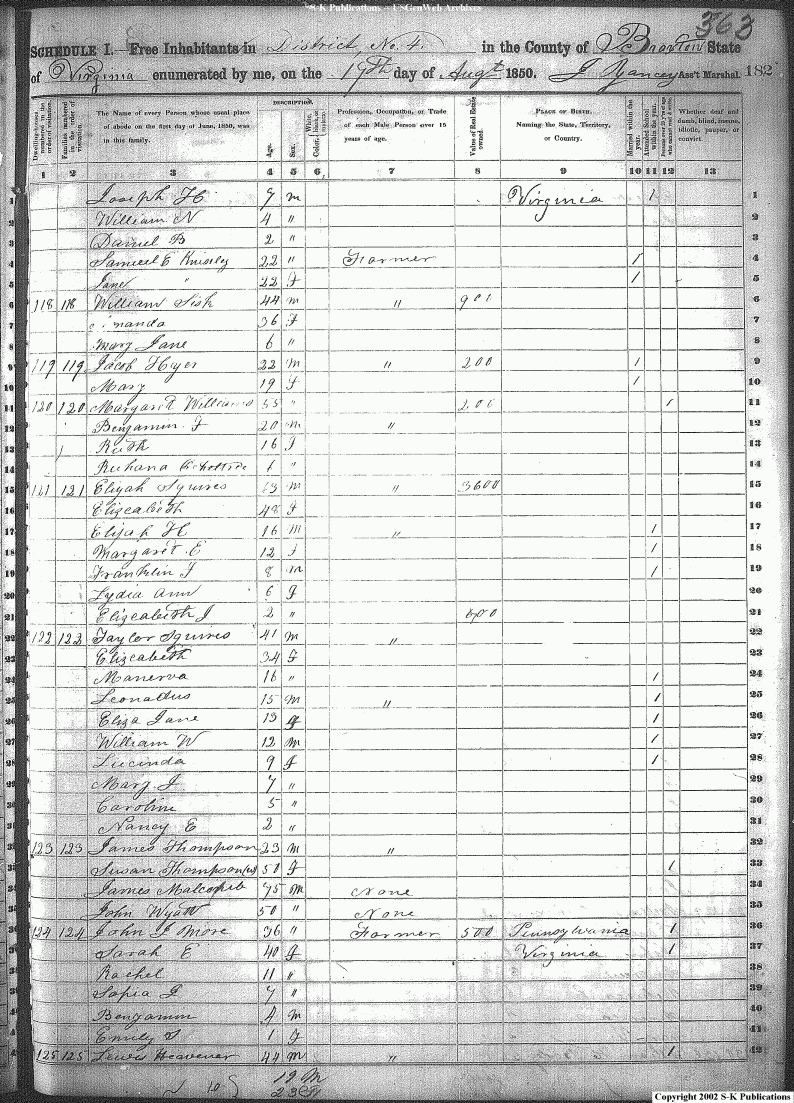 S-K Publications – USGenWeb Archives
363
SCHEDULE I.—Free Inhabitants in District No. 4. in the County of Braxton State
of Virginia enumerated by me, on the 19th day of Augt 1850. J Yancey Ass't Marshal. 182
DESCRIPTION.
Dwelling-houses numbered in the order of visitation.
Families numbered in the order of visitation.
The Name of every Person whose usual place of abode on the first day of June, 1850, was in this family.
Age.
Sex.
White, black, or mulatto. Color,
Profession, Occupation, or Trade of each Male Person over 15 years of age.
Value of Real Estate owned.
PLACE OF BIRTH. Naming the State, Territory, or Country.
Married within the year.
Attended School within the year.
Persons over 20 y'rs of age who cannot read & write.
Whether deaf and dumb, blind, insane, idiotic, pauper, or convict.
1 2 3 4 5 6 7 8 9 10 11 12 13
1 Joseph H. 7 m Virginia 1 1
2 William N 4 " 2
3 Daniel B 2 " 3
4 Samuel E Knisely 22 " Farmer 1 4
5 Jane " 22 f 1 5
6 118 118 William Sisk 44 m " 6
7 manda 36 f 7
8 Mary Jane 6 " 8
9 119 119 Jacob Hyer 22 m " 200 1 9
10 Mary 19 f 1 10
11 120 120 Margaret Williams 55 " 200 1 11
12 Benjamin F 20 m " 12
13 Ruth 16 f 13
14 Ruhana " 14
15 121 121 Elijah Squires m " 3600 15
16 Elizeabeth 48 f 16
17 Elijah H 16 m " 1 17
18 Margaret E 12 f 1 18
19 Franklin J 8 m 1 19
20 Lydia Ann 6 f 20
21 Elizeabeth J 2 " 21
22 122 122 Taylor Squires 41 m " 22
23 Elizeabeth 34 f 23
24 Manerva 16 " 1 24
25 Leonadus 15 m " 1 25
26 Eliza Jane 13 f 1 26
27 William W 12 m 1 27
28 Lucinda 9 f 1 28
29 Mary J 7 " 29
30 Caroline 5 " 30
31 Nancy E 2 " 31
32 123 123 James Thompson 23 m " 32
33 Susan Thompson 50 f 1 33
34 James 75 m None 34
35 John Wyatt 50 " None 35
36 124 124 John More 36 " Farmer 500 Pennsylvania 1 36
37 Sarah E 40 f Virginia 1 37
38 Rachel 11 " 38
39 Sophia J 7 " 39
40 Benjamin 4 m 40
41 Emily S 1 f 41
42 125 125 Lewis Heavener 44 m " 1 42
19 M
23 F
Copyright 2002 S-K Publications